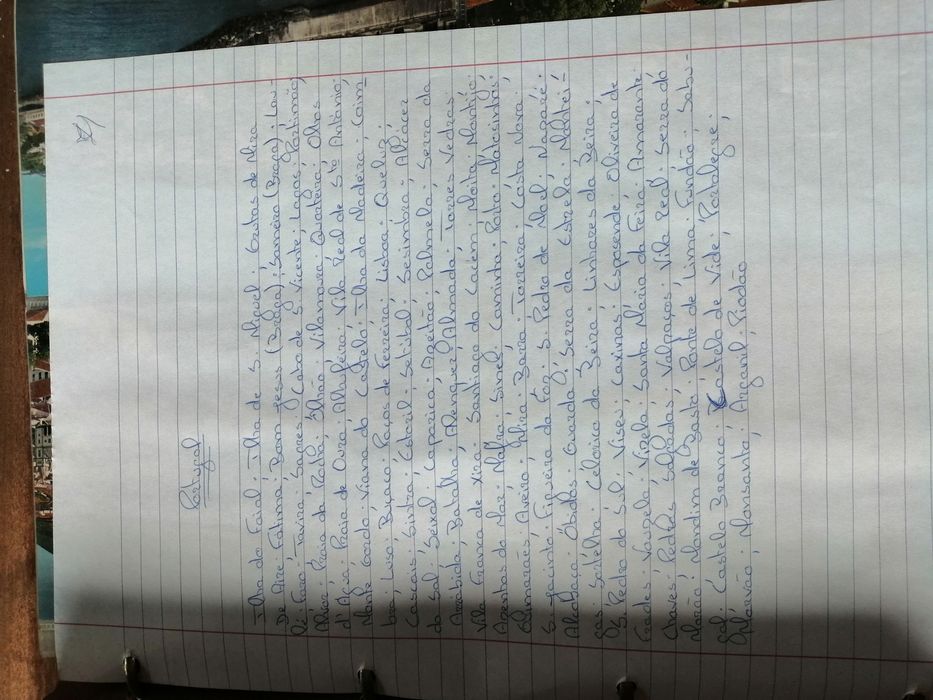 Portugal
Ilha do Faial; Ilha de S. Miguel; Grutas de Mira
De Aire; Fátima; Bom Jesus (Braga); Sameiro (Braga); Lou-
lé; Faro; Tavira; Sagres (Cabo de S. Vicente; Lagos; Portimão;
Alvor; Praia da Rocha; Ílhavo; Vilamoura; Quarteira; Olhos
d'Água; Praia de Oura; Albufeira; Vila Real de Stº António;
Monte Gordo; Viana do Castelo; Ilha da Madeira; Coim-
bra; Luso; Buçaco; Paços de Ferreira; Lisboa; Queluz;
Cascais; Sintra; Estoril; Setúbal; Sesimbra; Alcácer
do Sal; Seixal; Caparica; Azeitão; Palmela; Serra da
Arrábida; Batalha; Alenquer; Almada; Torres Vedras;
Vila Franca de Xira; Santiago do Cacém; Moita; Montijo;
Azenhas do Mar; Mafra; Sines; Caminha; Porto; Matosinhos;
Guimarães; Aveiro; Mira; Barra; Torreira; Costa Nova;
S. Jacinto; Figueira da Foz; S. Pedro de Moel; Nazaré;
Alcobaça; Óbidos; Guarda; Serra da Estrela; Mantei-
gas; Sortelha; Celorico da Beira; Linhares da Beira;
S. Pedro do Sul; Viseu; Caxinas; Esposende; Oliveira de
Frades; Vouzela; Vizela; Santa Maria da Feira; Amarante;
Chaves; Pedras Salgadas; Valpaços; Vila Real; Serra do
Marão; Mondim de Basto; Ponte de Lima; Fundão; Sabu-
gal; Castelo Branco; Castelo de Vide; Portalegre;
Marvão; Monsanto; Arganil; Piódão